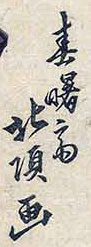 春曙斎
北頂画